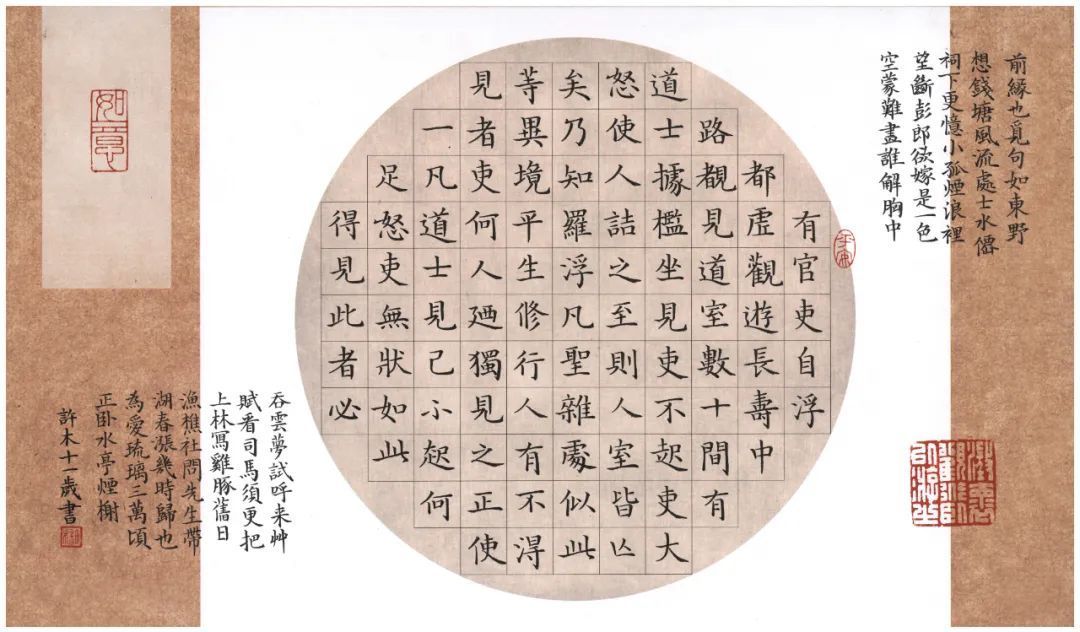 前緣也覓句如東野
想錢塘風流處士水僊
祠下更憶小孤煙浪裡
望斷彭郎欲嫁是一色
空蒙難畫誰解胸中
有官吏自浮
都虛觀遊長壽中
路覩見道室數十間有
道士據檻坐見吏不起吏大
怒使人詰之至則人室皆亾
矣乃知羅浮凡聖雜處似此
等異境平生修行人有不得
見者吏何人廼獨見之正使
一凡道士見己不起何
足怒吏無狀如此
得見此者必
吞雲夢試呼来艸
賦看司馬須更把
上林寫雞豚舊日
漁樵社問先生帶
湖春漲幾時歸也
為愛琉璃三萬頃
正卧水亭煙榭
許木十一歲書
如意
平安